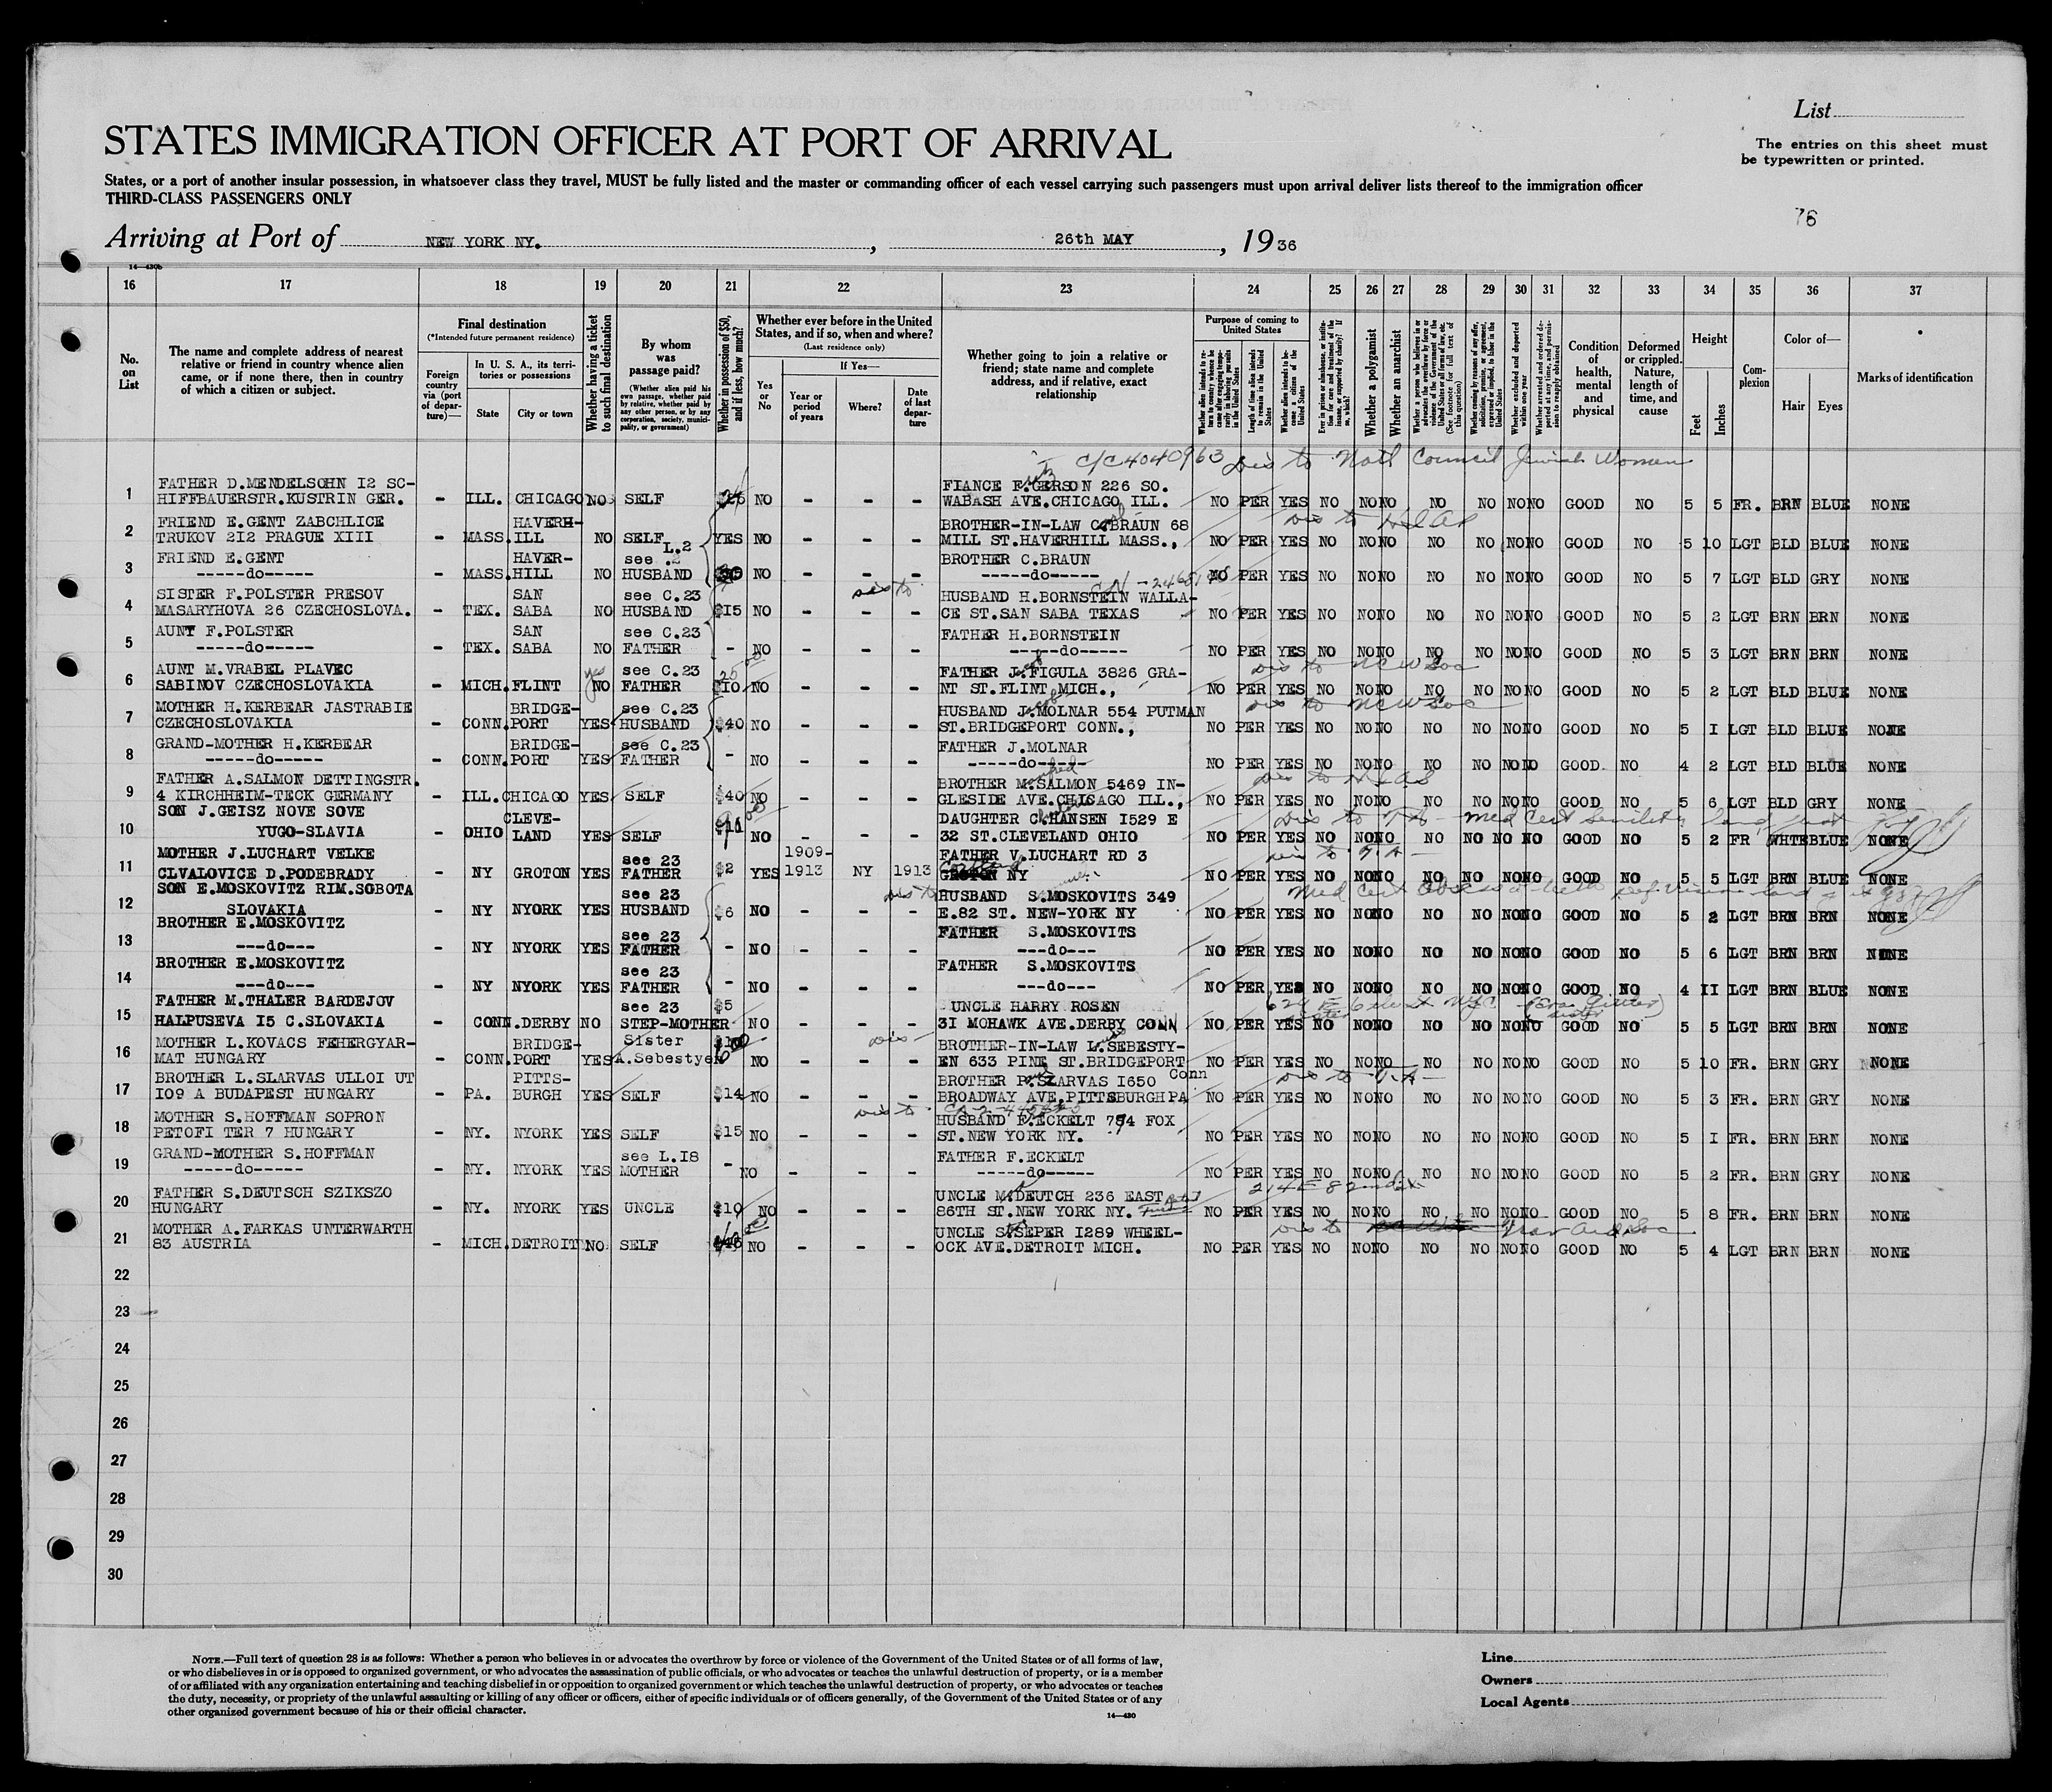 List
STATES IMMIGRATION OFFICER AT PORT OF ARRIVAL
The entries on this sheet must
be typewritten or printed.
States, or a port of another insular possession, in whatsoever class they travel, MUST be fully listed and the master or commanding officer of each vessel carrying such passengers must upon arrival deliver lists thereof to the immigration officer
THIRD-CLASS PASSENGERS ONLY
76
Arriving at Port of NEW YORK NY. , 26th MAY , 19 36
14—430b
16 17 18 19 20 21 22 23 24 25 26 27 28 29 30 31 32 33 34 35 36 37
No. on List
The name and complete address of nearest relative or friend in country whence alien came, or if none there, then in country of which a citizen or subject.
Final destination
(*Intended future permanent residence)
Foreign country via (port of departure)—
In U. S. A., its territories or possessions
State
City or town
Whether having a ticket to such final destination
By whom was passage paid?
(Whether alien paid his own passage, whether paid by relative, whether paid by any other person, or by any corporation, society, municipality, or government)
Whether in possession of $50, and if less, how much?
Whether ever before in the United States, and if so, when and where?
(Last residence only)
Yes or No
If Yes—
Year or period of years
Where?
Date of last departure
Whether going to join a relative or friend; state name and complete address, and if relative, exact relationship
Purpose of coming to United States
Length of time alien intends to remain in the United States
Whether alien intends to become a citizen of the United States
Whether a polygamist
Whether an anarchist
Condition of health, mental and physical
Deformed or crippled. Nature, length of time, and cause
Height
Feet
Inches
Complexion
Color of—
Hair
Eyes
Marks of identification
C/C 4040963 Dis to Natl Council Jewish Women
1 FATHER D.MENDELSOHN I2 SC-
HIFFBAUERSTR.KUSTRIN GER. - ILL. CHICAGO NO SELF NO - - - FIANCE F.GERSON 226 SO.
WABASH AVE.CHICAGO ILL. NO PER YES NO NO NO NO NO NO NO GOOD NO 5 5 FR. BRN BLUE NONE
2 FRIEND E.GENT ZABCHLICE
TRUKOV 2I2 PRAGUE XIII - MASS. HAVERH-
ILL NO SELF YES NO - - - BROTHER-IN-LAW C.BRAUN 68
MILL ST.HAVERHILL MASS., NO PER YES NO NO NO NO NO NO NO GOOD NO 5 10 LGT BLD BLUE NONE
3 FRIEND E.GENT
-----do----- - MASS. HAVER-
HILL NO see L.2
HUSBAND NO - - - BROTHER C.BRAUN
-----do----- NO PER YES NO NO NO NO NO NO NO GOOD NO 5 7 LGT BLD GRY NONE
4 SISTER F.POLSTER PRESOV
MASARYHOVA 26 CZECHOSLOVA. - TEX. SAN
SABA NO see C.23
HUSBAND $I5 NO - - - HUSBAND H.BORNSTEIN WALLA-
CE ST.SAN SABA TEXAS NO PER YES NO NO NO NO NO NO NO GOOD NO 5 2 LGT BRN BRN NONE
5 AUNT F.POLSTER
-----do----- - TEX. SAN
SABA NO see C.23
FATHER - NO - - - FATHER H.BORNSTEIN
-----do----- NO PER YES NO NO NO NO NO NO NO GOOD NO 5 3 LGT BRN BRN NONE
6 AUNT M.VRABEL PLAVEC
SABINOV CZECHOSLOVAKIA - MICH. FLINT yes NO see C.23
FATHER $I0 NO - - - FATHER J.FIGULA 3826 GRA-
NT ST.FLINT MICH., NO PER YES NO NO NO NO NO NO NO GOOD NO 5 2 LGT BLD BLUE NONE
7 MOTHER H.KERBEAR JASTRABIE
CZECHOSLOVAKIA - CONN. BRIDGE-
PORT YES see C.23
HUSBAND $40 NO - - - HUSBAND J.MOLNAR 554 PUTMAN
ST.BRIDGEPORT CONN., NO PER YES NO NO NO NO NO NO NO GOOD NO 5 I LGT BLD BLUE NONE
8 GRAND-MOTHER H.KERBEAR
-----do----- - CONN. BRIDGE-
PORT YES see C.23
FATHER - NO - - - FATHER J.MOLNAR
-----do----- NO PER YES NO NO NO NO NO NO NO GOOD. NO 4 2 LGT BLD BLUE NONE
9 FATHER A.SALMON DETTINGSTR.
4 KIRCHHEIM-TECK GERMANY - ILL. CHICAGO YES SELF $40 NO - - - BROTHER M.SALMON 5469 IN-
GLESIDE AVE.CHICAGO ILL., NO PER YES NO NO NO NO NO NO NO GOOD NO 5 6 LGT BLD GRY NONE
10 SON J.GEISZ NOVE SOVE
YUGO-SLAVIA - OHIO CLEVE-
LAND YES SELF $11 NO - - - DAUGHTER C.HANSEN I529 E
32 ST.CLEVELAND OHIO NO PER YES NO NO NO NO NO NO NO GOOD NO 5 2 FR WHTE BLUE NONE
11 MOTHER J.LUCHART VELKE
CLVALOVICE D.PODEBRADY - NY GROTON YES see 23
FATHER $2 YES 1909-
1913 NY 1913 FATHER V.LUCHART RD 3
GROTON NY NO PER YES NO NO NO NO NO NO NO GOOD NO 5 5 LGT BRN BLUE NONE
12 SON E.MOSKOVITZ RIM.SOBOTA
SLOVAKIA - NY NYORK YES see 23
HUSBAND $6 NO - - - HUSBAND S.MOSKOVITS 349
E.82 ST. NEW-YORK NY NO PER YES NO NO NO NO NO NO NO GOOD NO 5 2 LGT BRN BRN NONE
13 BROTHER E.MOSKOVITZ
---do--- - NY NYORK YES see 23
FATHER - NO - - - FATHER S.MOSKOVITS
---do--- NO PER YES NO NO NO NO NO NO NO GOOD NO 5 6 LGT BRN BRN NONE
14 BROTHER E.MOSKOVITZ
---do--- - NY NYORK YES see 23
FATHER - NO - - - FATHER S.MOSKOVITS
---do--- NO PER YES NO NO NO NO NO NO NO GOOD NO 4 II LGT BRN BLUE NONE
15 FATHER M.THALER BARDEJOV
HALPUSEVA I5 C.SLOVAKIA - CONN. DERBY NO see 23
STEP-MOTHER $5 NO - - - UNCLE HARRY ROSEN
3I MOHAWK AVE.DERBY CONN NO PER YES NO NO NO NO NO NO NO GOOD NO 5 5 LGT BRN BRN NONE
16 MOTHER L.KOVACS FEHERGYAR-
MAT HUNGARY - CONN. BRIDGE-
PORT YES Sister
A.Sebestyen NO - - - BROTHER-IN-LAW L.SEBESTY-
EN 633 PINE ST.BRIDGEPORT Conn NO PER YES NO NO NO NO NO NO NO GOOD NO 5 10 FR. BRN GRY NONE
17 BROTHER L.SLARVAS ULLOI UT
IO9 A BUDAPEST HUNGARY - PA. PITTS-
BURGH YES SELF $14 NO - - - BROTHER P.SZARVAS I650
BROADWAY AVE.PITTSBURGH PA NO PER YES NO NO NO NO NO NO NO GOOD NO 5 3 FR. BRN GRY NONE
18 MOTHER S.HOFFMAN SOPRON
PETOFI TER 7 HUNGARY - NY. NYORK YES SELF $I5 NO - - - HUSBAND F.ECKELT 794 FOX
ST.NEW YORK NY. NO PER YES NO NO NO NO NO NO NO GOOD NO 5 I FR. BRN BRN NONE
19 GRAND-MOTHER S.HOFFMAN
-----do----- - NY. NYORK YES see L.I8
MOTHER - NO - - - FATHER F.ECKELT
-----do----- NO PER YES NO NO NO NO NO NO NO GOOD NO 5 2 FR. BRN GRY NONE
20 FATHER S.DEUTSCH SZIKSZO
HUNGARY - NY. NYORK YES UNCLE $10 NO - - - UNCLE M.DEUTCH 236 EAST
86TH ST.NEW YORK NY. NO PER YES NO NO NO NO NO NO NO GOOD NO 5 8 FR. BRN BRN NONE
21 MOTHER A.FARKAS UNTERWARTH
83 AUSTRIA - MICH. DETROIT NO SELF NO - - - UNCLE S.SEPER I289 WHEEL-
OCK AVE.DETROIT MICH. NO PER YES NO NO NO NO NO NO NO GOOD NO 5 4 LGT BRN BRN NONE
22
23
24
25
26
27
28
29
30
NOTE.—Full text of question 28 is as follows: Whether a person who believes in or advocates the overthrow by force or violence of the Government of the United States or of all forms of law,
or who disbelieves in or is opposed to organized government, or who advocates the assassination of public officials, or who advocates or teaches the unlawful destruction of property, or is a member
of or affiliated with any organization entertaining and teaching disbelief in or opposition to organized government or which teaches the unlawful destruction of property, or who advocates or teaches
the duty, necessity, or propriety of the unlawful assaulting or killing of any officer or officers, either of specific individuals or of officers generally, of the Government of the United States or of any
other organized government because of his or their official character.
14—430
Line
Owners
Local Agents